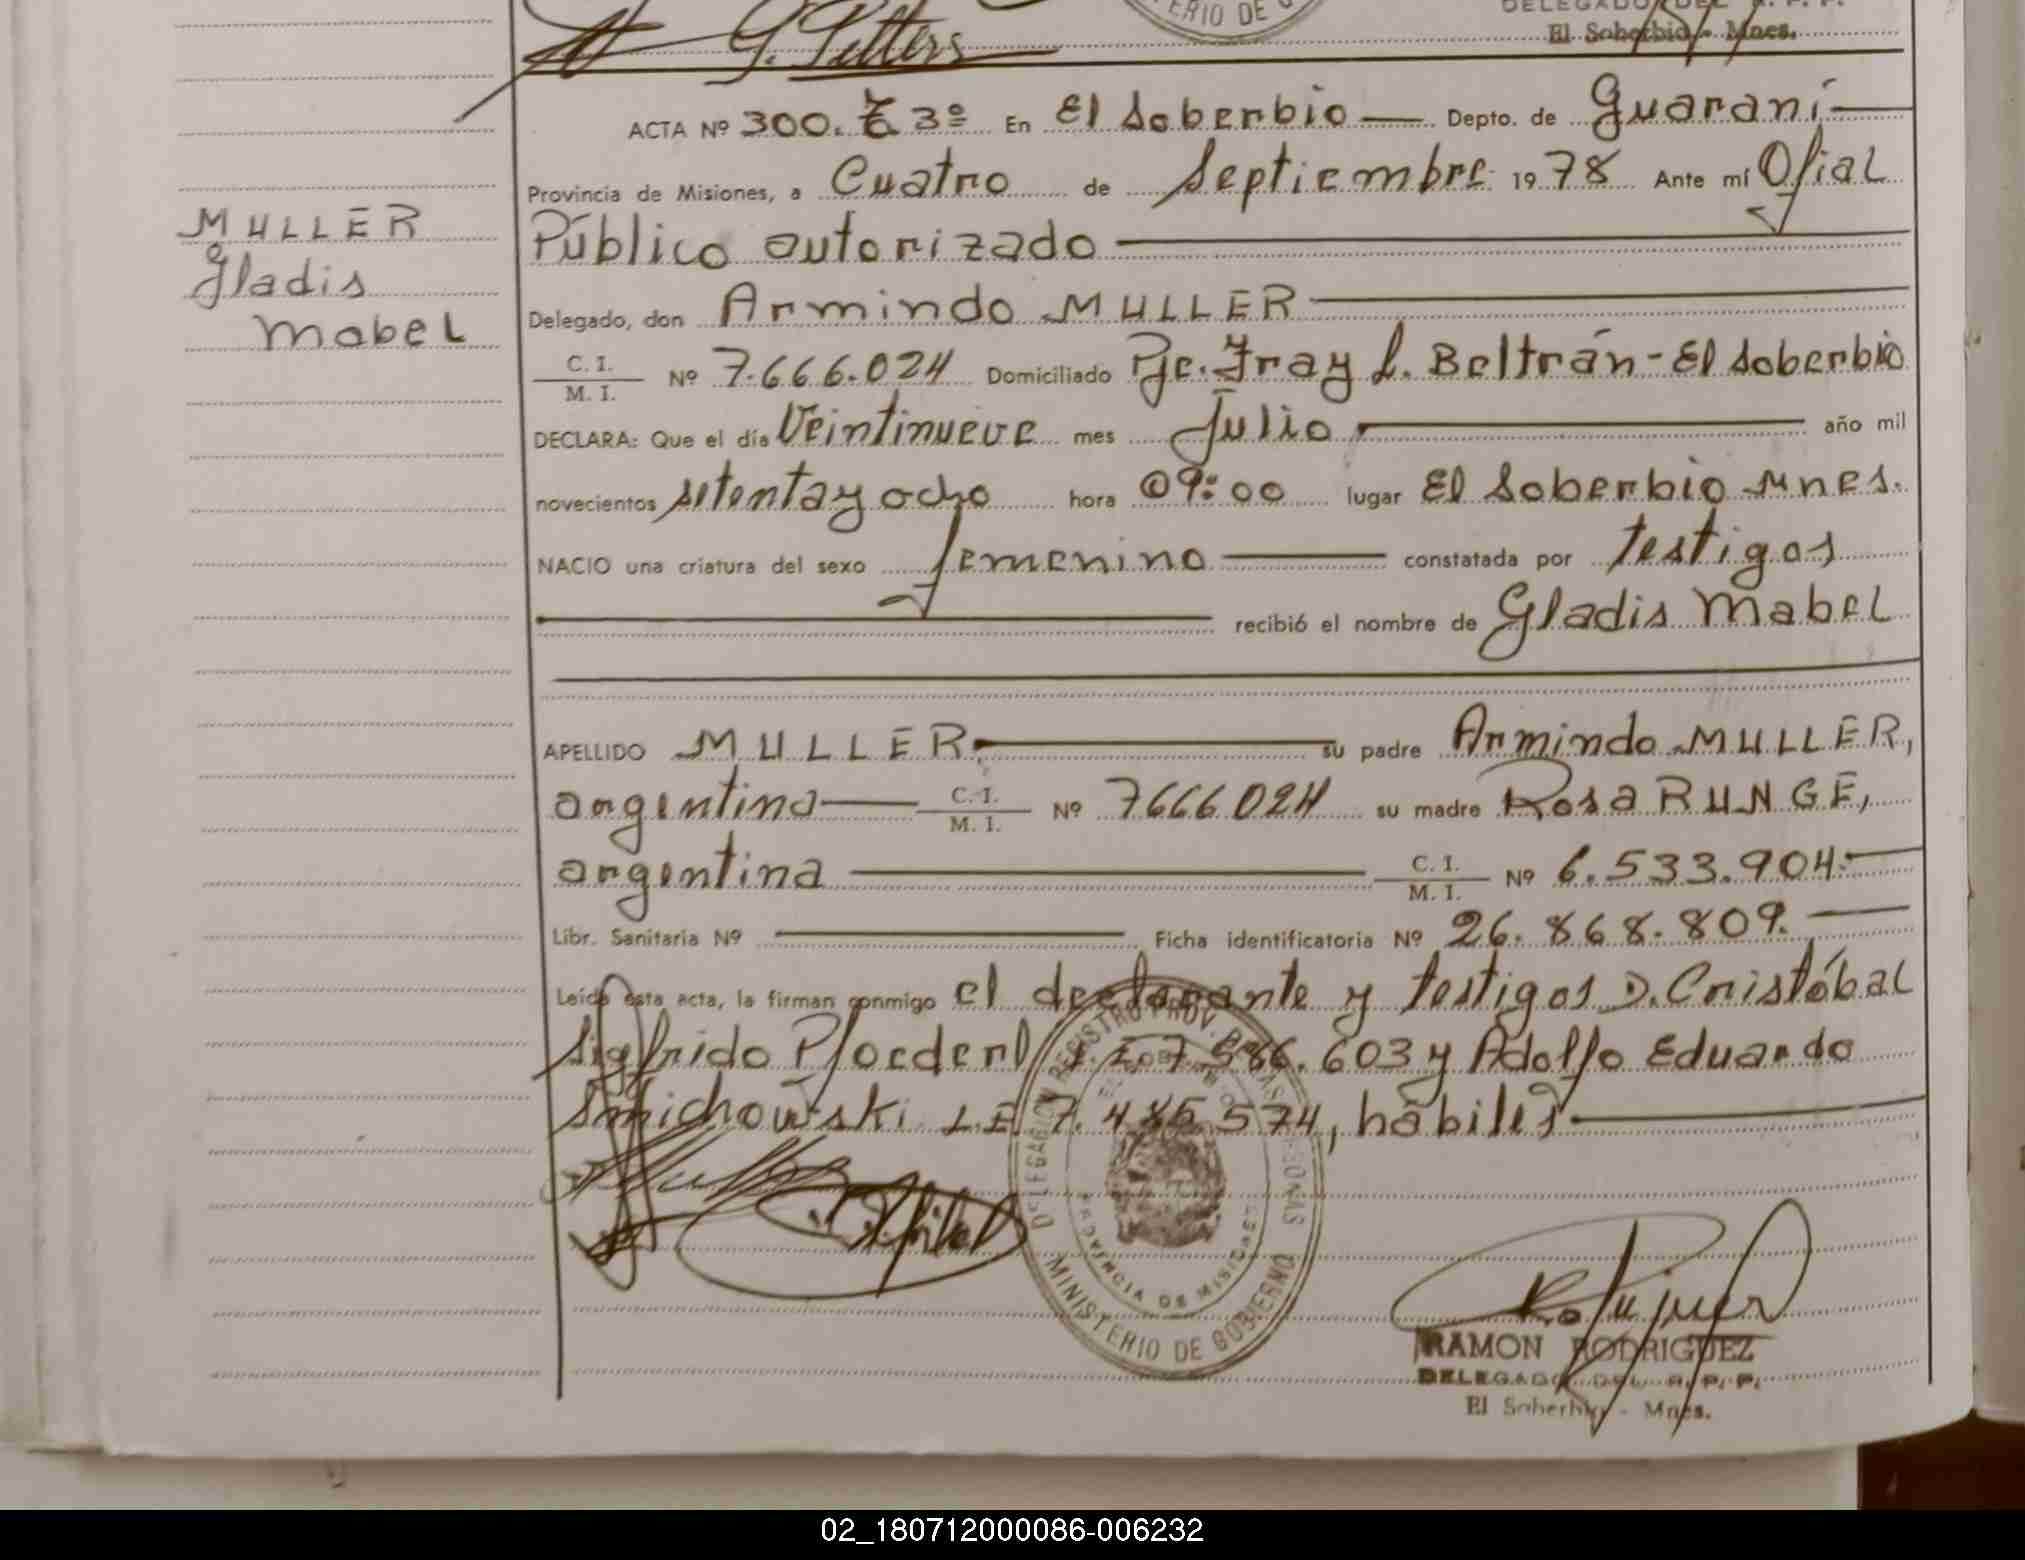 G. Petters
ERIO DE
DELEGADO DEL R. P. P.
El Soberbio - Mnes.
ACTA Nº 300. T 3º En El Soberbio Depto. de Guaraní
Provincia de Misiones, a Cuatro de Septiembre 1978 Ante mí Ofial
Público autorizado
MULLER
Gladis
Mabel
Delegado, don Armindo MULLER
C. I.
M. I. Nº 7.666.024 Domiciliado Pje. Fray L. Beltrán - El Soberbio
DECLARA: Que el día Veintinueve mes Julio año mil
novecientos setenta y ocho hora 09:00 lugar El Soberbio Mnes.
NACIO una criatura del sexo femenino constatada por testigos
recibió el nombre de Gladis Mabel
APELLIDO MULLER su padre Armindo MULLER,
argentino C. I.
M. I. Nº 7666024 su madre Rosa RUNGE,
argentina C. I.
M. I. Nº 6.533.904.
Libr. Sanitaria Nº Ficha identificatoria Nº 26.868.809.
Leída esta acta, la firman conmigo el declarante y testigos D. Cristóbal
Sigfrido Pfoederl 603 y Adolfo Eduardo
Smichowski L.E. 7. 574, hábiles
DELEGACION REGISTRO PROV. DE LAS PERSONAS
PROVINCIA DE MISIONES
MINISTERIO DE GOBIERNO
RAMON RODRIGUEZ
DELEGADO DEL R. P. P.
El Soberbio - Mnes.
02_180712000086-006232